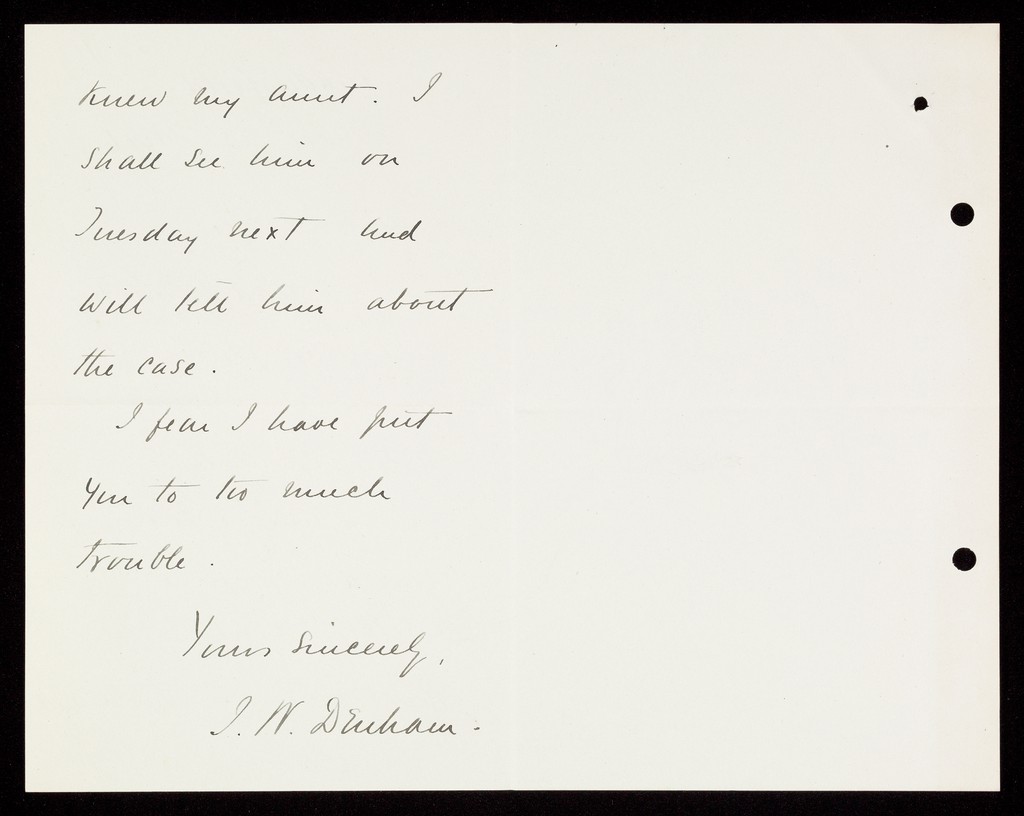 knew my aunt. I
shall see him on
Tuesday next and
will tell him about
the case.
I fear I have put
you to too much
trouble.
Yours sincerely,
J. W. Denham.